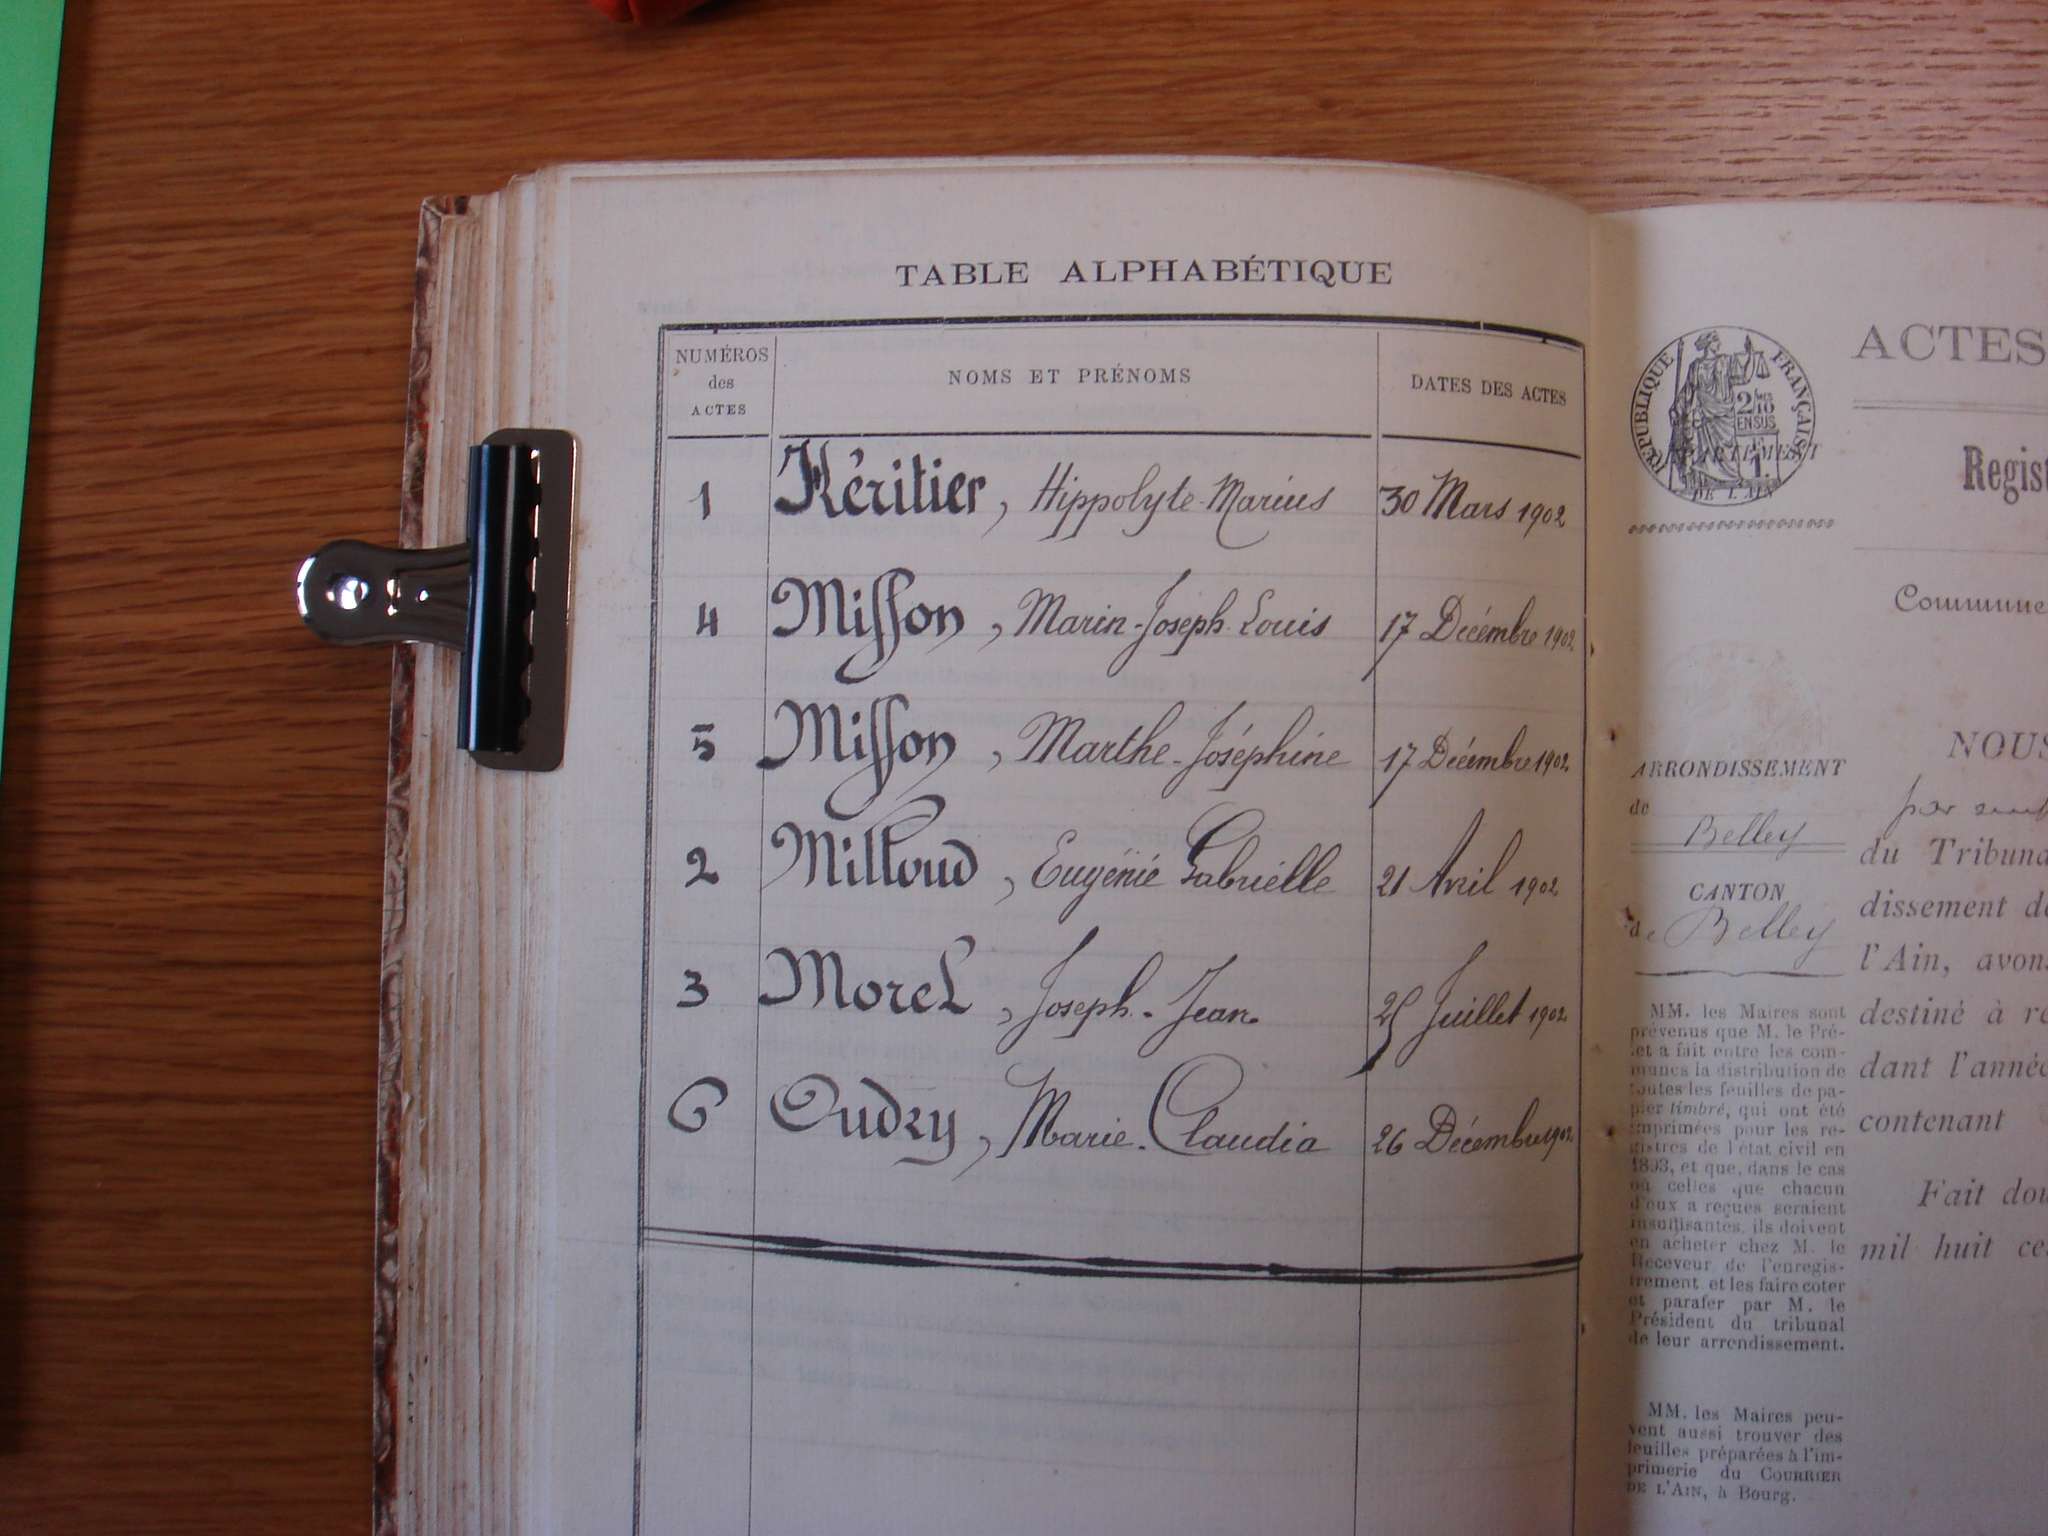 TABLE ALPHABÉTIQUE
NUMÉROS
des
ACTES
NOMS ET PRÉNOMS
DATES DES ACTES
1 Héritier, Hippolyte-Marius 30 Mars 1902
4 Misson, Marin-Joseph-Louis 17 Décémbre 1902
5 Misson, Marthe-Joséphine 17 Décémbre 1902
2 Milloud, Eugénie Gabrielle 21 Avril 1902
3 Morel, Joseph-Jean 25 Juillet 1902
6 Oudry, Marie-Claudia 26 Décembre 1902
RÉPUBLIQUE FRANÇAISE
2/10 MES
EN SUS
DÉPARTEMENT
DE L'AIN
ARRONDISSEMENT
de
Belley
CANTON
de Belley
MM. les Maires sont
prévenus que M. le Pré-
fet a fait entre les com-
munes la distribution de
toutes les feuilles de pa-
pier timbré, qui ont été
imprimées pour les re-
gistres de l'état civil en
1893, et que, dans le cas
où celles que chacun
d'eux a reçues seraient
insuffisantes, ils doivent
en acheter chez M. le
Receveur de l'enregis-
trement et les faire coter
et parafer par M. le
Président du tribunal
de leur arrondissement.
MM. les Maires peu-
vent aussi trouver des
feuilles préparées à l'im-
primerie du COURRIER
DE L'AIN, à Bourg.
ACTES
Regist
Commune
NOUS
par
du Tribuna
dissement de
l'Ain, avons
destiné à re
dant l'année
contenant
Fait dou
mil huit ce